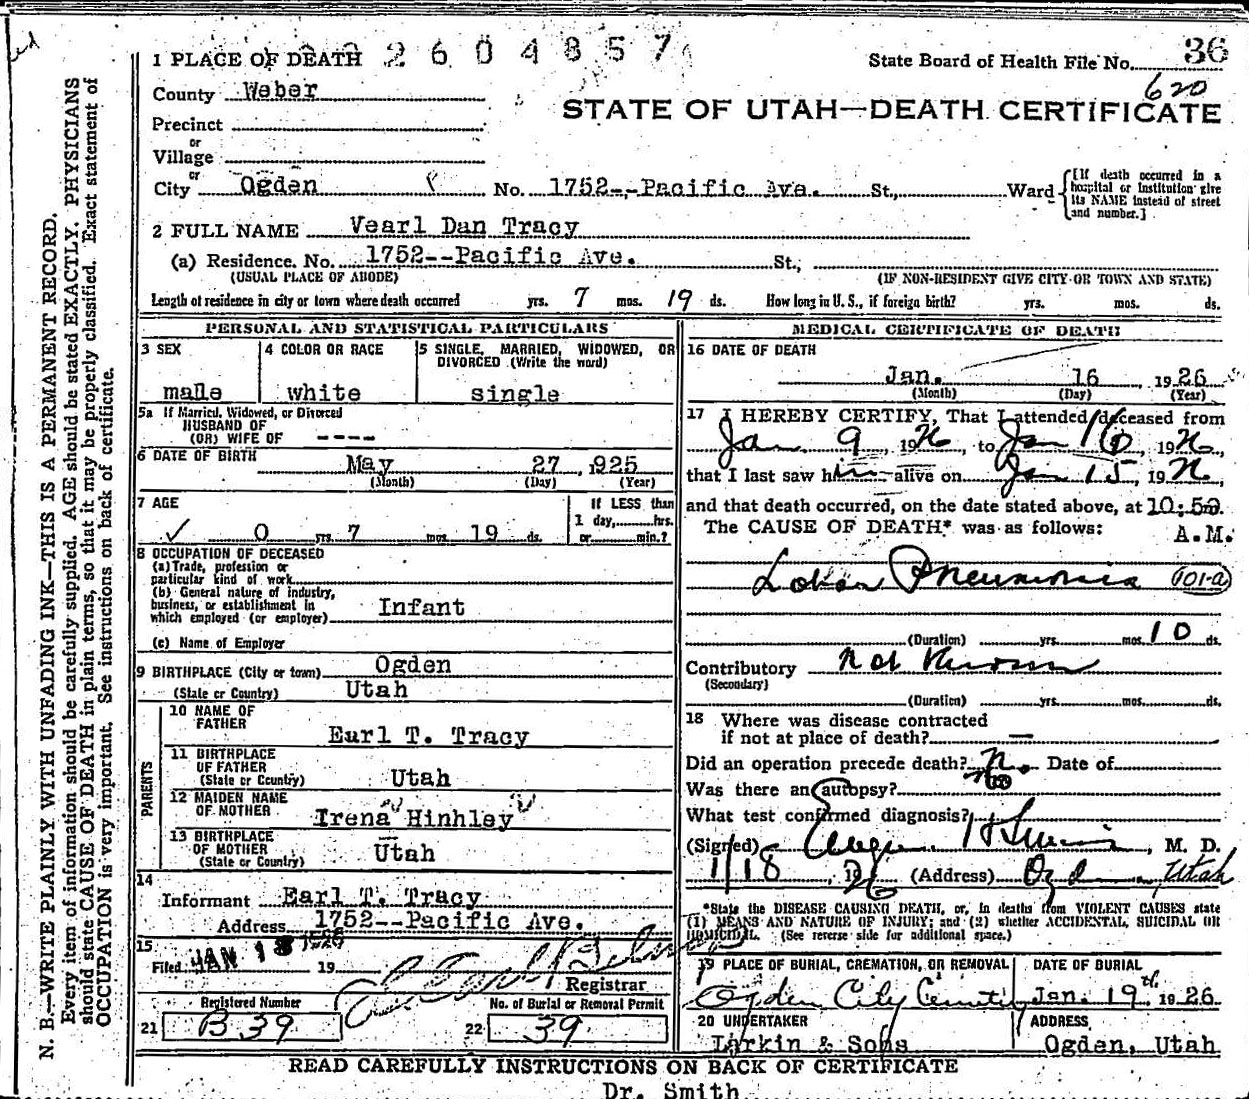 1 PLACE OF DEATH 2 6 0 4 8 5 7
State Board of Health File No. 36
620
County Weber
STATE OF UTAH—DEATH CERTIFICATE
Precinct
or
Village
or
City Ogden No. 1752--Pacific Ave. St., Ward
[If death occurred in a hospital or institution give its NAME instead of street and number.]
2 FULL NAME Vearl Dan Tracy
(a) Residence. No. 1752--Pacific Ave. St.,
(USUAL PLACE OF ABODE) (IF NON-RESIDENT GIVE CITY OR TOWN AND STATE)
Length of residence in city or town where death occurred yrs. 7 mos. 19 ds. How long in U. S., if foreign birth? yrs. mos. ds.
PERSONAL AND STATISTICAL PARTICULARS
3 SEX
male
4 COLOR OR RACE
white
5 SINGLE, MARRIED, WIDOWED, OR DIVORCED (Write the word)
single
5a If Married, Widowed, or Divorced
HUSBAND OF
(OR) WIFE OF ----
6 DATE OF BIRTH May 27, 1925
(Month) (Day) (Year)
7 AGE
0 yrs. 7 mos. 19 ds.
If LESS than
1 day, hrs.
or min.?
8 OCCUPATION OF DECEASED
(a) Trade, profession or
particular kind of work
(b) General nature of industry,
business, or establishment in
which employed (or employer) Infant
(c) Name of Employer
9 BIRTHPLACE (City or town) Ogden
(State or Country) Utah
PARENTS
10 NAME OF
FATHER Earl T. Tracy
11 BIRTHPLACE
OF FATHER
(State or Country) Utah
12 MAIDEN NAME
OF MOTHER Irena Hinhley
13 BIRTHPLACE
OF MOTHER
(State or Country) Utah
14
Informant Earl T. Tracy
Address 1752--Pacific Ave.
15
Filed JAN 18 1926 19
Registrar
Registered Number
21 B 39
No. of Burial or Removal Permit
22 39
MEDICAL CERTIFICATE OF DEATH
16 DATE OF DEATH
Jan. 16, 1926
(Month) (Day) (Year)
17 I HEREBY CERTIFY, That I attended deceased from
Jan 9, 1926, to Jan 16, 1926,
that I last saw him alive on Jan 15, 1926,
and that death occurred, on the date stated above, at 10:50
The CAUSE OF DEATH* was as follows: A.M.
Lobar Pneumonia 101-a
(Duration) yrs. mos. 10 ds.
Contributory Not Known
(Secondary)
(Duration) yrs. mos. ds.
18 Where was disease contracted
if not at place of death? —
Did an operation precede death? No. Date of
Was there an autopsy? no
What test confirmed diagnosis?
(Signed) , M. D.
1/18, 1926 (Address) Ogden Utah
*State the DISEASE CAUSING DEATH, or, in deaths from VIOLENT CAUSES state
(1) MEANS AND NATURE OF INJURY; and (2) whether ACCIDENTAL, SUICIDAL OR
HOMICIDAL. (See reverse side for additional space.)
19 PLACE OF BURIAL, CREMATION, OR REMOVAL
Ogden City Cemetery
DATE OF BURIAL
Jan. 19th 1926
20 UNDERTAKER
Larkin & Sons
ADDRESS
Ogden, Utah
READ CAREFULLY INSTRUCTIONS ON BACK OF CERTIFICATE
Dr. Smith
N. B.—WRITE PLAINLY WITH UNFADING INK—THIS IS A PERMANENT RECORD.
Every item of information should be carefully supplied. AGE should be stated EXACTLY. PHYSICIANS
should state CAUSE OF DEATH in plain terms, so that it may be properly classified. Exact statement of
OCCUPATION is very important. See instructions on back of certificate.